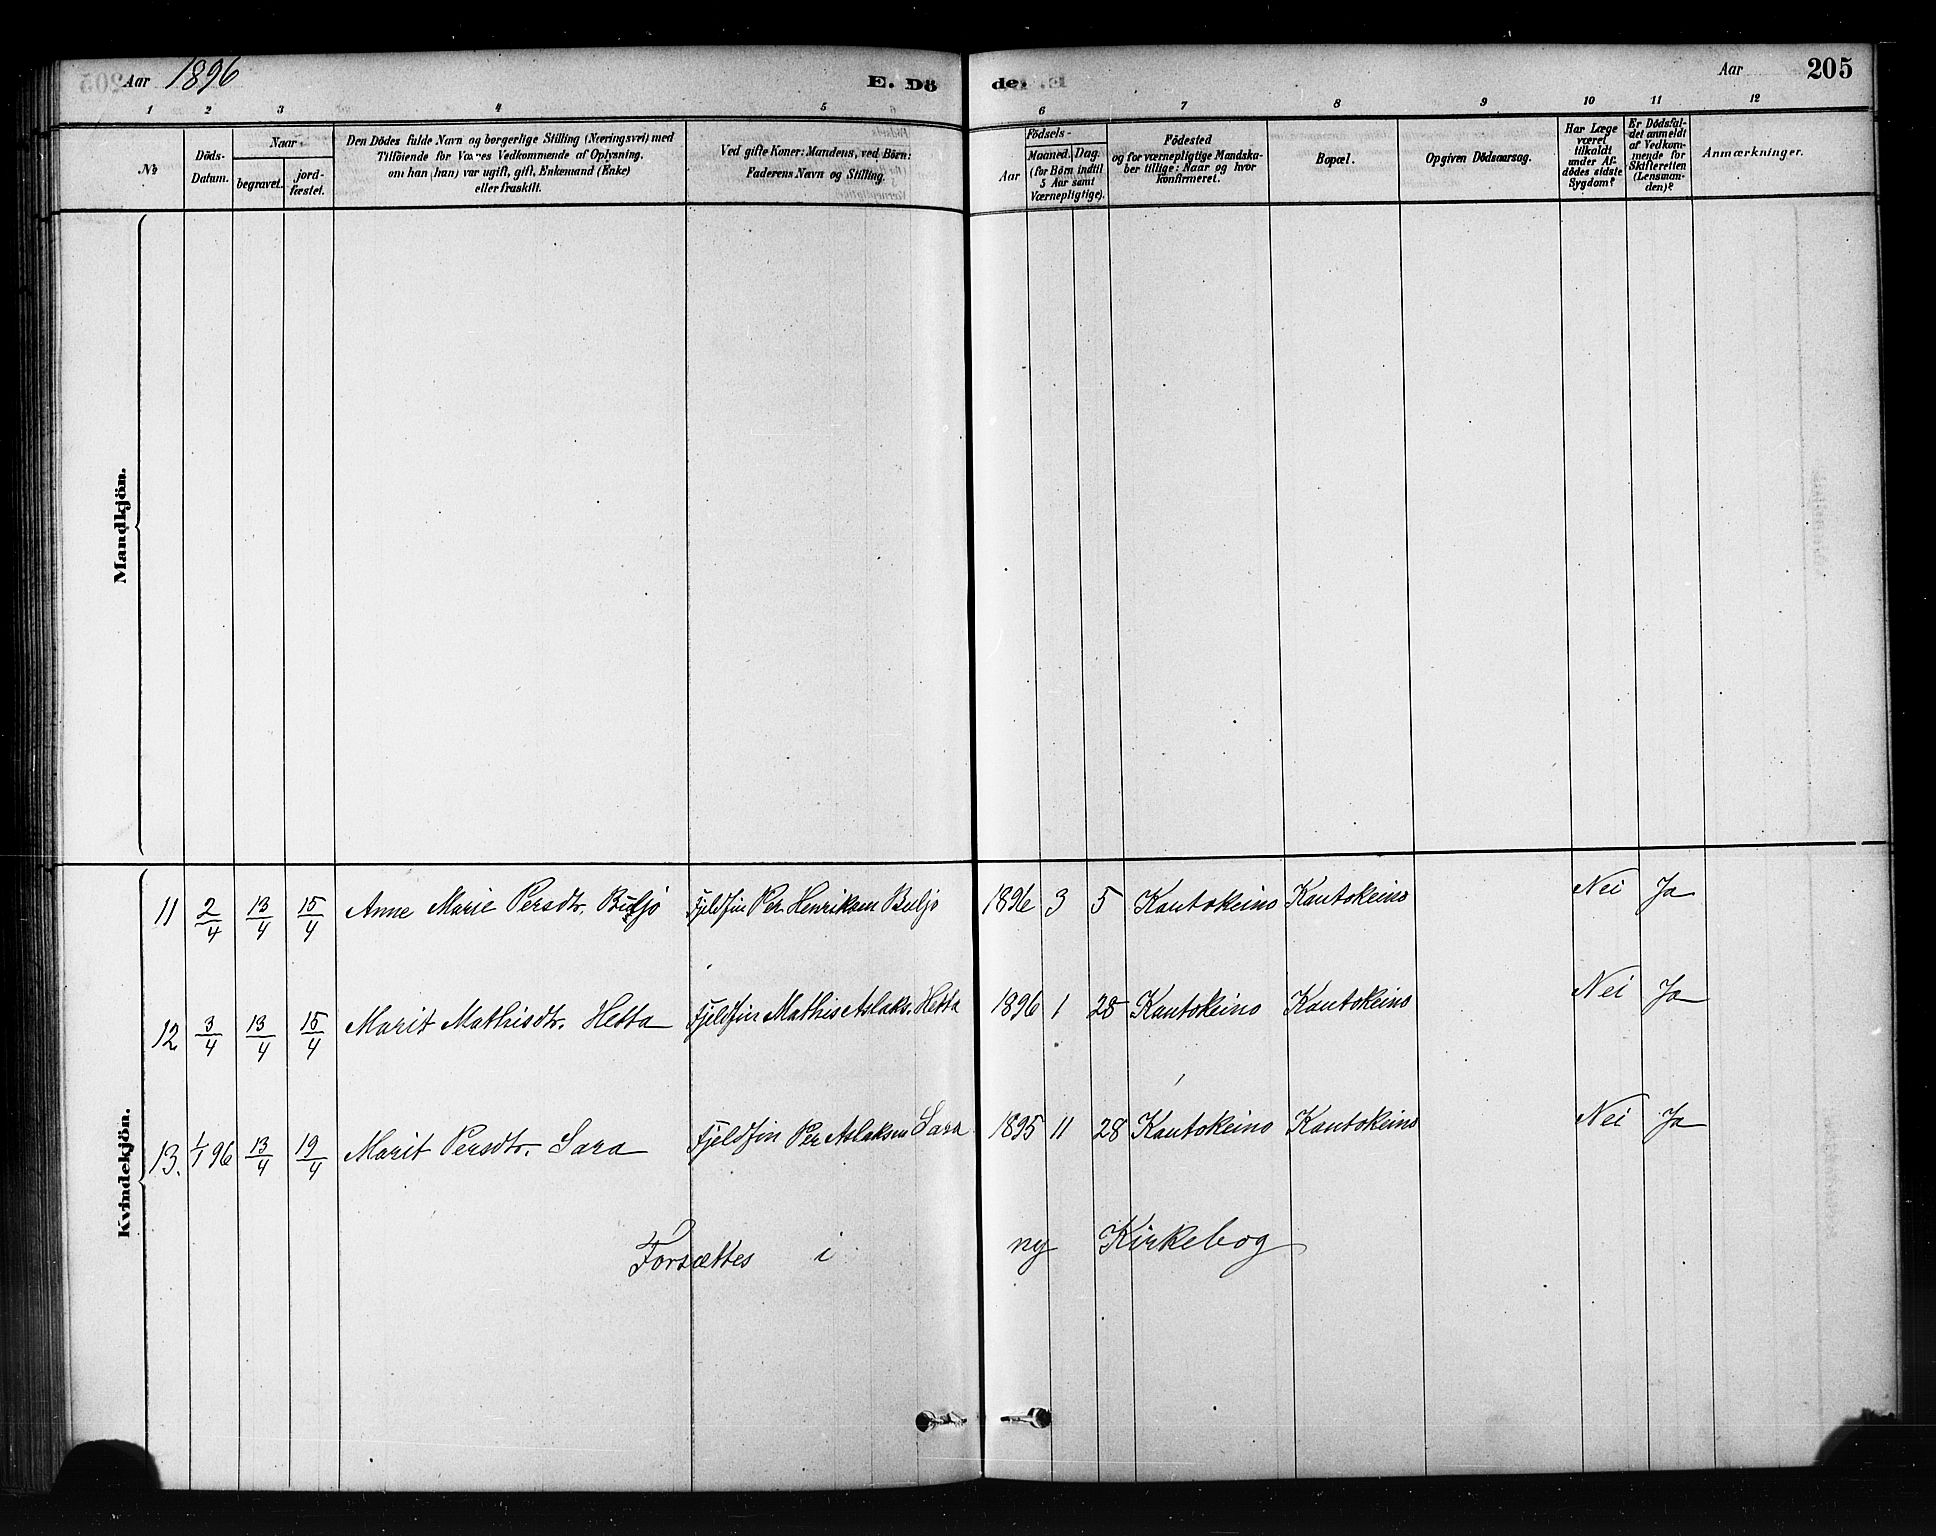 Aar 1896 E. Dö de. Aar 205
1 2 3 4 5 6 7 8 9 10 11 12
No
Döds-
Datum.
Naar
begravet.
jord-
fæstet.
Den Dödes fulde Navn og borgerlige Stilling (Næringsvei) med
Tilföiende for Voxnes Vedkommende af Oplysning,
om han (hun) var ugift, gift, Enkemand (Enke)
eller fraskilt.
Ved gifte Koner: Mandens, ved Börn:
Faderens Navn og Stilling.
Födsels-
Aar
Maaned. Dag.
(for Börn indtil
5 Aar samt
Værnepligtige).
Födested
og for værnepligtige Mandska-
ber tillige: Naar og hvor
konfirmeret.
Bopæl.
Opgiven Dödsaarsag.
Har Læge
været
tilkaldt
under Af-
dödes sidste
Sygdom?
Er Dödsfal-
det anmeldt
af Vedkom-
mende for
Skifteretten
(Lensman-
den)?
Anmærkninger.
Mandkjön.
Kvindekjön.
11 2/4 13/4 15/4 Anne Marie Persdtr. Buljo Fjeldfin Per Henriksen Buljo 1896 3 5 Kautokeino Kautokeino Nei Ja
12 3/4 13/4 15/4 Marit Mathisdtr. Hetta Fjeldfin Mathis Aslaks. Hetta 1896 1 28 Kautokeino Kautokeino Nei Ja
13. 1/1 96 13/4 19/4 Marit Persdtr. Sara Fjeldfin Per Aslaksen Sara 1895 11 28 Kautokeino Kautokeino Nei Ja
Forsættes i ny Kirkebog